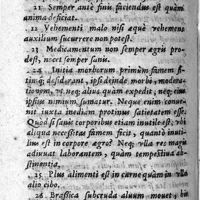 21 Semper antè finis faciendus est quàm
anima deficiat.
22 Vehementi malo nisi æquè vehemens
auxilium succurrere non potest.
23 Medicamentum non semper ægris prodest,
nocet semper sanis.
24 Initia morborum primùm famem
desiderant, ipsa deinde morbi,
neq; aliud quàm expedit, neq;
ipsius nimium sumatur. Neque enim
iuxta inediam protinus satietatem esse:
Quòd si sanis corporibus etiam inutile est,
aliqua necessitas famem ficit, quantò
est in corpore ægro? Neq; ulla res magis
adiuuat laborantem, quàm tempestiua
abstinentia.
25 Plus alimenti est in carne quàm in
alio cibo.
26 Brassica subcruda aluum mouet,